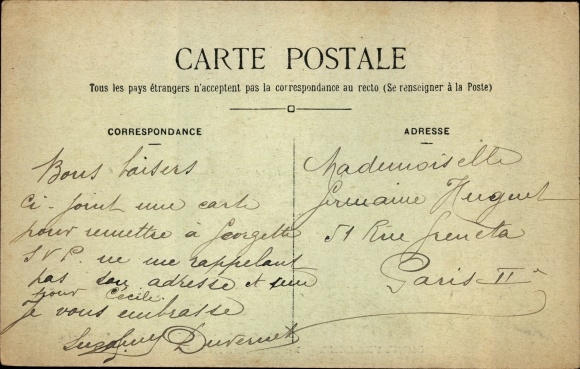 CARTE POSTALE
Tous les pays étrangers n'acceptent pas la correspondance au recto (Se renseigner à la Poste)
CORRESPONDANCE
Bons baisers
Ci-joint une carte
pour remettre à Georgette
S.V.P. ne me rappelant
pas son adresse et une
pour Cécile.
Je vous embrasse
ADRESSE
Mademoiselle
Germaine Huguet
51 Rue Greneta
Paris II